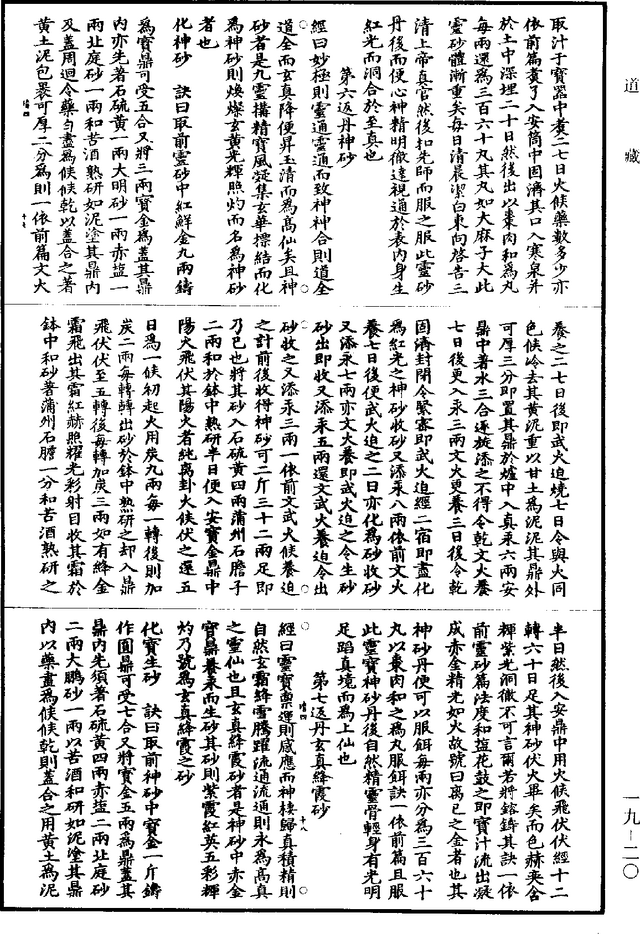 道藏
取汁于寶器中煑二七日火候藥數多少亦
依前篇煑了入安筒中固濟其口入寒泉井
於土中深埋二十日然後出以棗肉和爲丸
每兩還爲三百六十丸其丸如大麻子大此
靈砂體漸重矣每日清晨潔白東向啓告三
清上帝真官然後扣先師而服之服此靈砂
丹後而便心神精明徹達視通於表內身生
紅光而洞合於至真也
第六返丹神砂
經曰妙極則靈通靈通而致神神合則道全
道全而玄真降便昇玉清而爲高仙矣且神
砂者是九靈搆精寶風凝集玄華摽結而化
爲神砂則煥燦玄黃光輝照灼而名爲神砂
者也
化神砂　訣曰取前靈砂中紅鮮金九兩鑄
爲寶鼎可受五合又將三兩寶金爲蓋其鼎
內亦先著石硫黃一兩大明砂一兩赤塩一
兩北庭砂一兩和苦酒熟研如泥塗其鼎內
及蓋周迴令藥勻盡爲候候乾以蓋合之著
黃土泥包褁可厚二分爲則一依前篇文火
養之二七日後即武火迫燒七日令與火同
色候冷去其黃泥重以甘土爲泥泥其鼎外
可厚三分即置其鼎於爐中入真汞六兩安
鼎中著水三合逐旋添之不得令乾文火養
七日後更入汞三兩文火更養三日後令乾
固濟封閉令緊密即武火迫經二宿即盡化
爲紅光之神砂收砂又添汞八兩依前文火
養七日後便武火迫之二日亦化爲砂收砂
又添汞七兩亦文火養即武火迫之令生砂
砂出即收又添汞五兩還文武火養迫令出
砂收之又添汞三兩一依前文武火候養迫
之計前後收得神砂可二斤三十二兩足即
乃已也將其砂入石硫黃四兩蒲州石膽子
二兩和於鉢中熟研半日便入安寶金鼎中
陽火飛伏其陽火者純离卦火候伏之還五
日爲一候初起火用炭九兩每一轉後則加
炭二兩每轉轉出砂於鉢中熟研之却入鼎
飛伏伏至五轉後每轉加炭三兩如有絳金
霜飛出其霜紅赫照耀光彩射目收其霜於
鉢中和砂著蒲州石膽一分和苦酒熟研之
半日然後入安鼎中用火候飛伏伏經十二
轉六十日足其神砂伏火畢矣而色赫奕含
輝紫光洞徹不可言爾若將鎔鑄其訣一依
前靈砂篇法度和塩花鼓之即寶汁流出凝
成赤金精光如火故號曰离己之金者也其
神砂丹便可以服餌每兩亦分爲三百六十
丸以棗肉和之爲丸服餌訣一依前篇且服
此靈寶神砂丹後自然精靈骨輕身有光明
足蹈真境而爲上仙也
第七返丹玄真絳霞砂
經曰靈寶禀運則感應而神棲歸真積精則
自然玄霜絳雪騰躍流通流通則永爲高真
之靈仙也且玄真絳霞砂者是神砂中赤金
寶鼎養汞而生砂其砂則紫霞紅英五彩輝
灼乃號爲玄真絳霞之砂
化寶生砂　訣曰取前神砂中寶金一斤鑄
作圓鼎可受七合又將寶金五兩爲鼎蓋其
鼎內先須著石硫黃四兩赤塩二兩北庭砂
二兩大鵬砂一兩以苦酒和研如泥塗其鼎
內以藥盡爲候候乾則蓋合之用黃土爲泥
一九－二〇